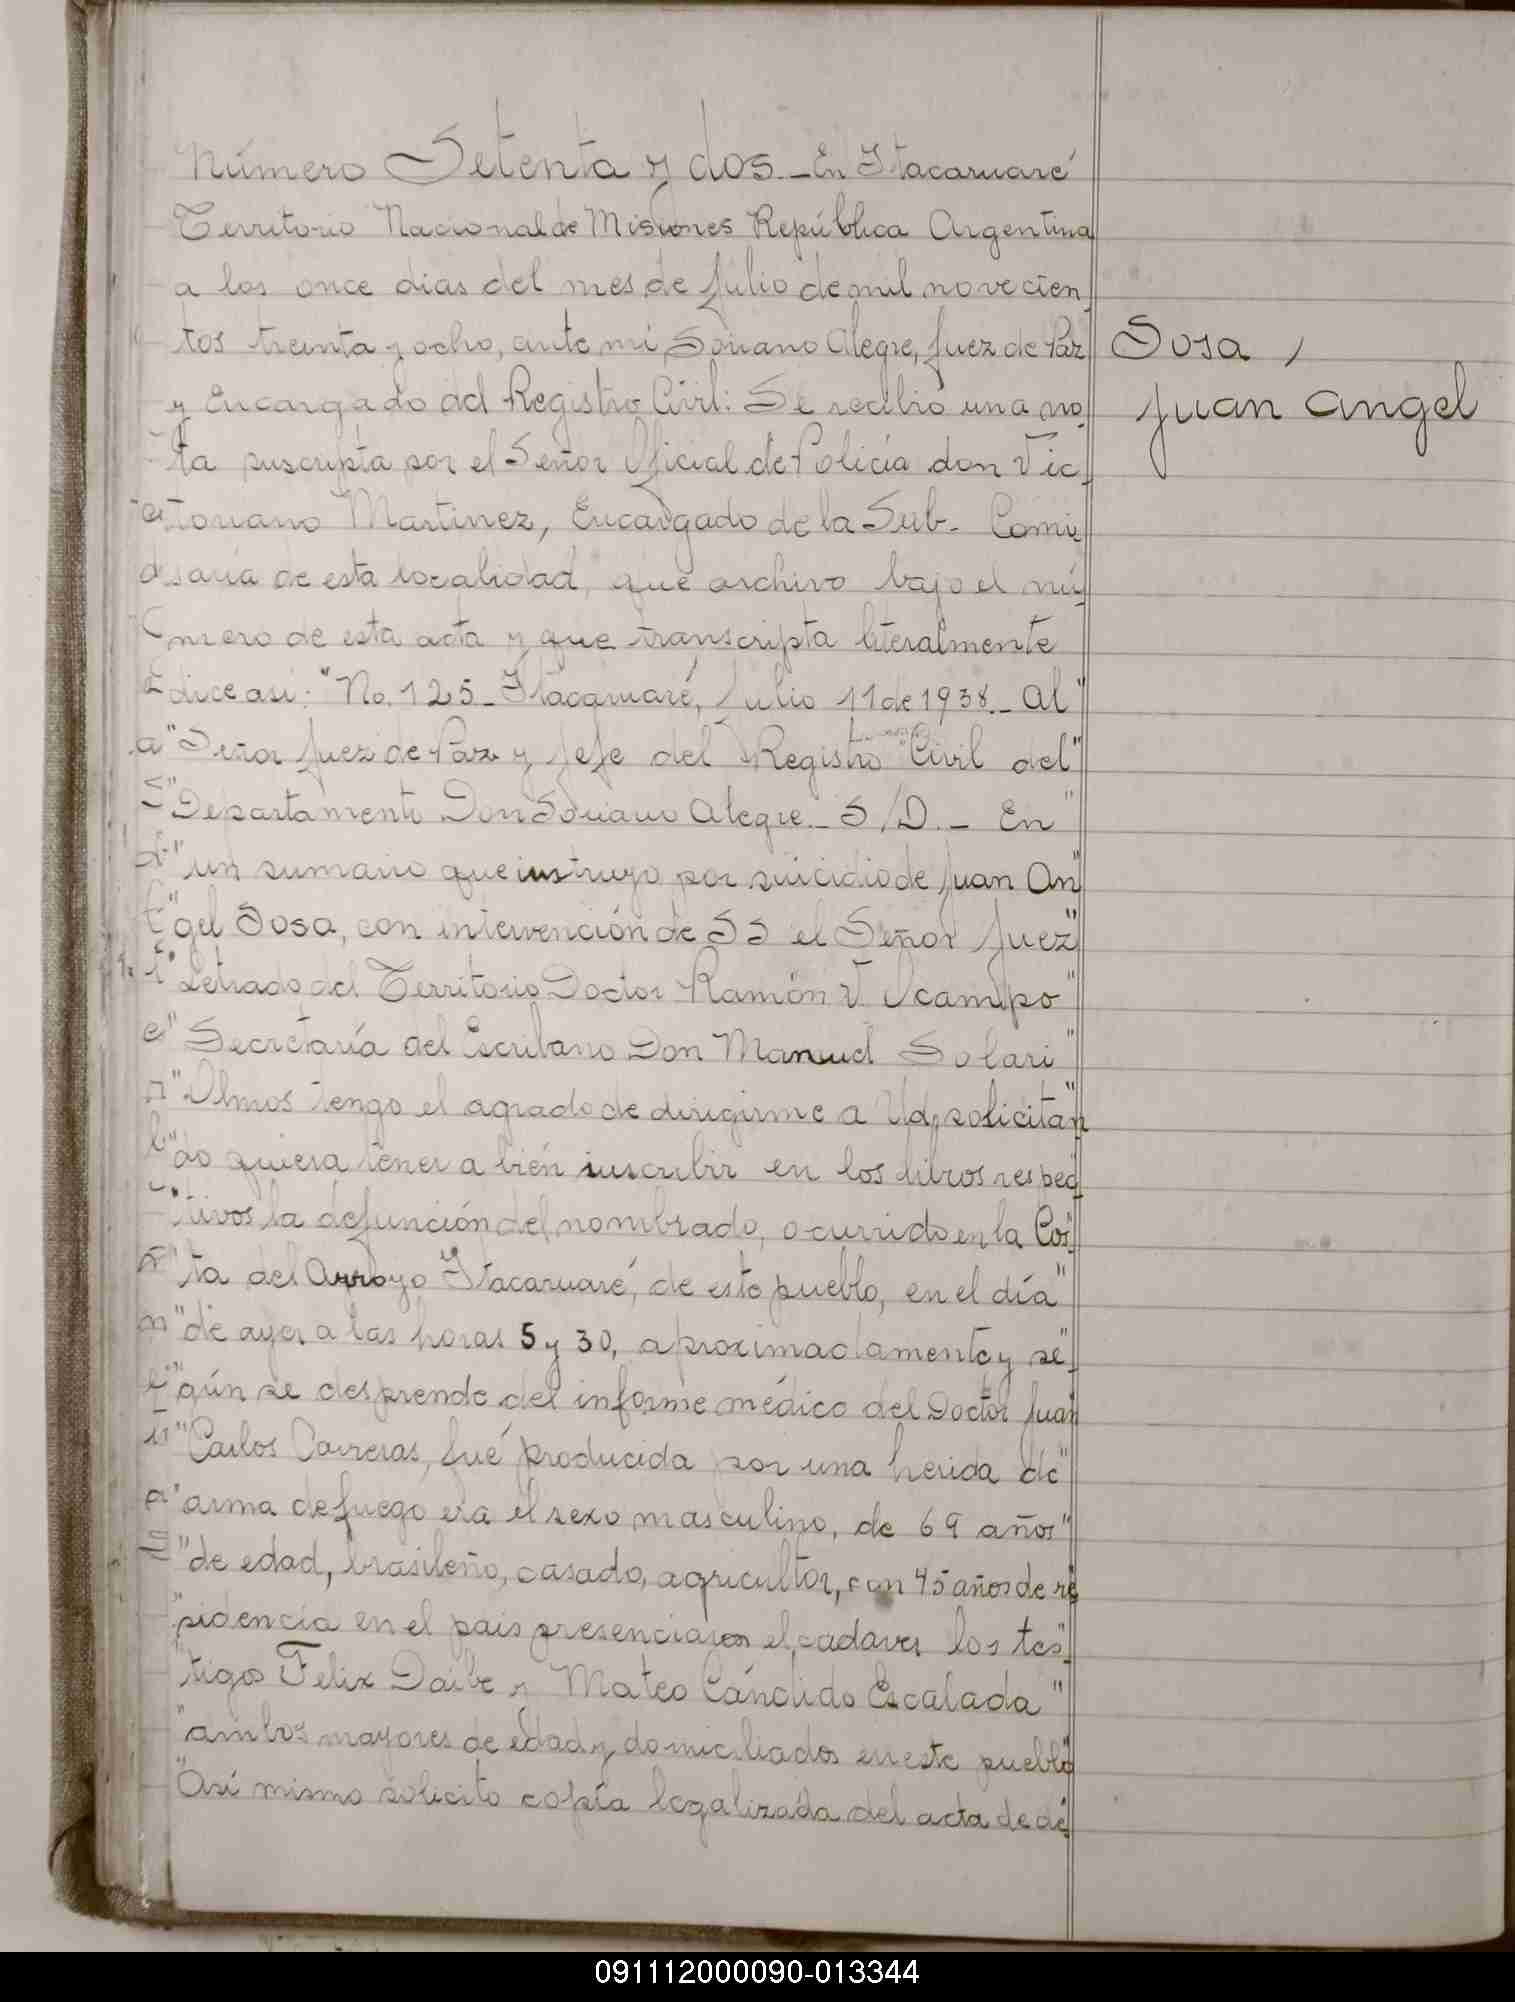 Número Setenta y dos._En Itacaruaré
Territorio Nacional de Misiones República Argentina
a los once dias del mes de Julio de mil novecien
tos treinta y ocho, ante mi Soriano Alegre, Juez de Paz
Sosa,
y Encargado del Registro Civil: Se recibió una no
Juan Angel
ta suscripta por el Señor Oficial de Policía don Vic
toriano Martinez, Encargado de la Sub- Comi
saría de esta localidad, que archivo bajo el nú
mero de esta acta y que transcripta literalmente
dice asi: "No. 125_Itacaruaré, Julio 11 de 1938._Al"
"Señor Juez de Paz y Jefe del Registro Civil del"
"Departamento Don Soriano Alegre._ S/D._ En"
"un sumario que instruyo por suicidio de Juan An"
"gel Sosa, con intervención de SS el Señor Juez"
"Letrado del Territorio Doctor Ramón V. Ocampo"
"Secretaría del Escribano Don Manuel Solari"
"Olmos tengo el agrado de dirigirme a Ud, solicitan
"do quiera tener a bién inscribir en los libros respec
"tivos la defunción del nombrado, ocurrido en la Cos"
"ta del Arroyo Itacaruaré, de este pueblo, en el día"
"de ayer a las horas 5 y 30, aproximadamente y se"
"gún se desprende del informe médico del Doctor Juan
"Carlos Carreras, fué producida por una herida de"
"arma de fuego era el sexo masculino, de 69 años"
"de edad, brasileño, casado, agricultor, con 45 años de re
"sidencia en el pais presenciaron el cadaver los tes"
"tigos Felix Daibe y Mateo Cándido Escalada"
"ambos mayores de edad y domiciliados en este pueblo
"Así mismo solicito copía legalizada del acta de de
091112000090-013344